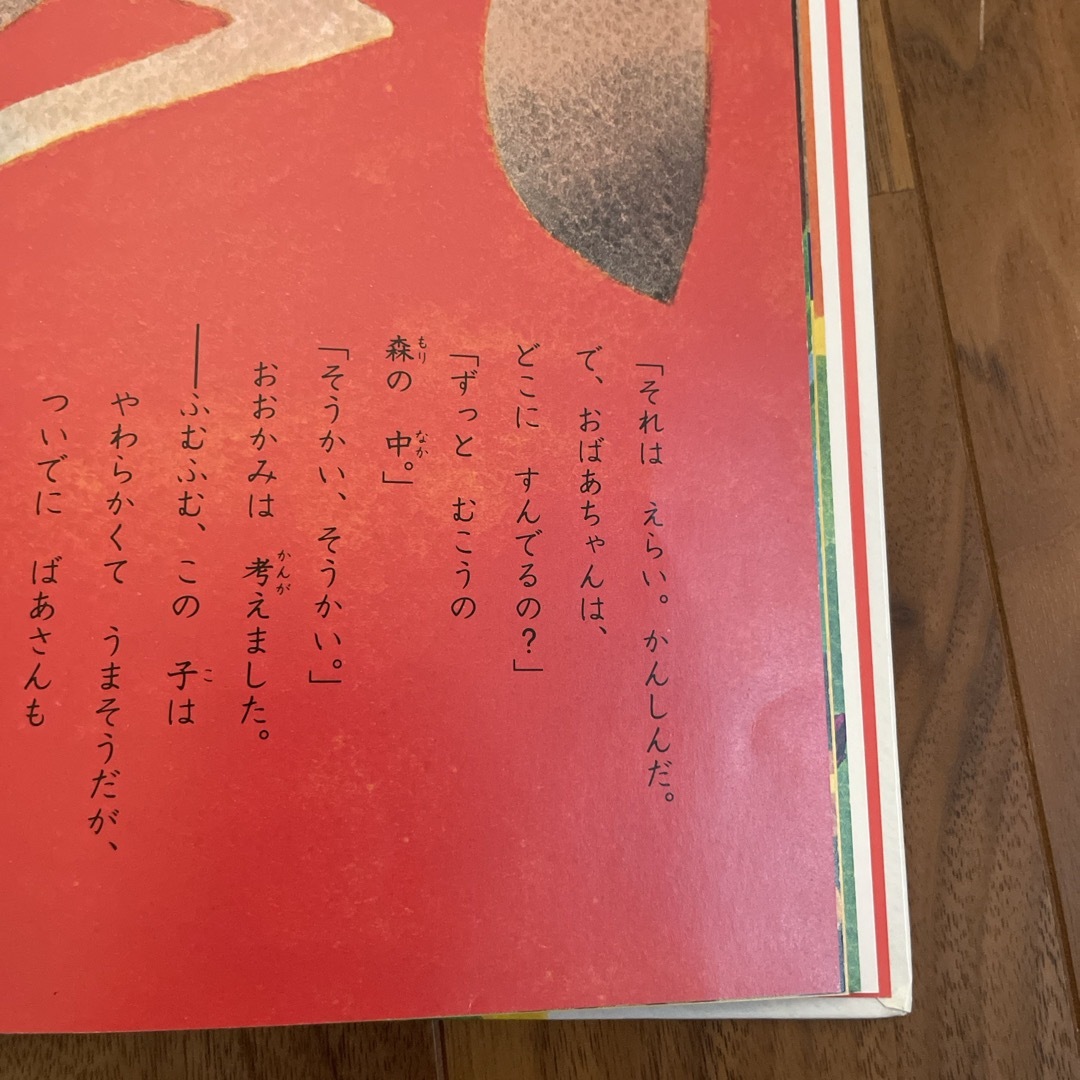 「それは えらい。かんしんだ。
で、おばあちゃんは、
どこに すんでるの?」
「ずっと むこうの
森の 中。」
「そうかい、そうかい。」
おおかみは 考えました。
――ふむふむ、この 子は
やわらかくて うまそうだが、
ついでに ばあさんも